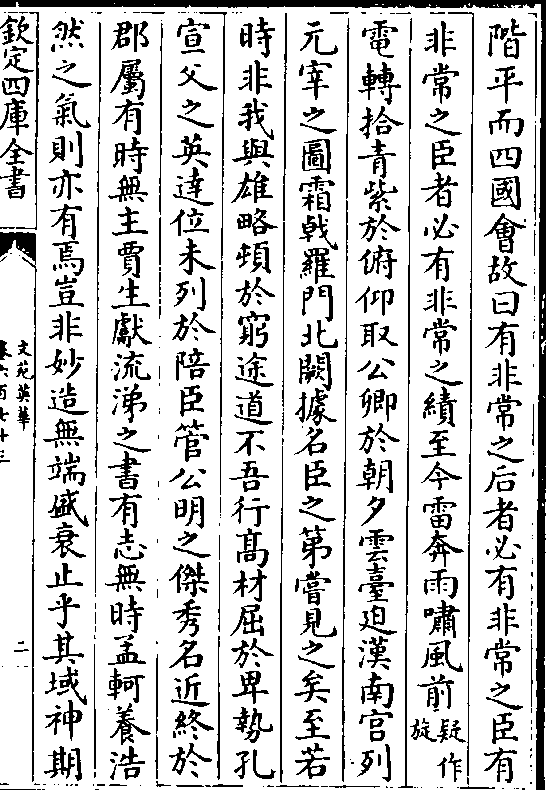 階平而四國會故曰有非常之后者必有非常之臣有
非常之臣者必有非常之績至今雷奔雨嘯風前疑作旋
電轉拾青紫於俯仰取公卿於朝夕雲臺迫漢南宫列
元宰之圖霜戟羅門北闕據名臣之第嘗見之矣至若
時非我與雄略頓於窮途道不吾行髙材屈於卑勢孔
宣父之英達位未列於陪臣管公明之傑秀名近終於
郡屬有時無主賈生獻流涕之書有志無時孟軻養浩
然之氣則亦有焉豈非妙造無端盛衰止乎其域神期
欽定四庫全書
文苑英華
卷六百七十三
二